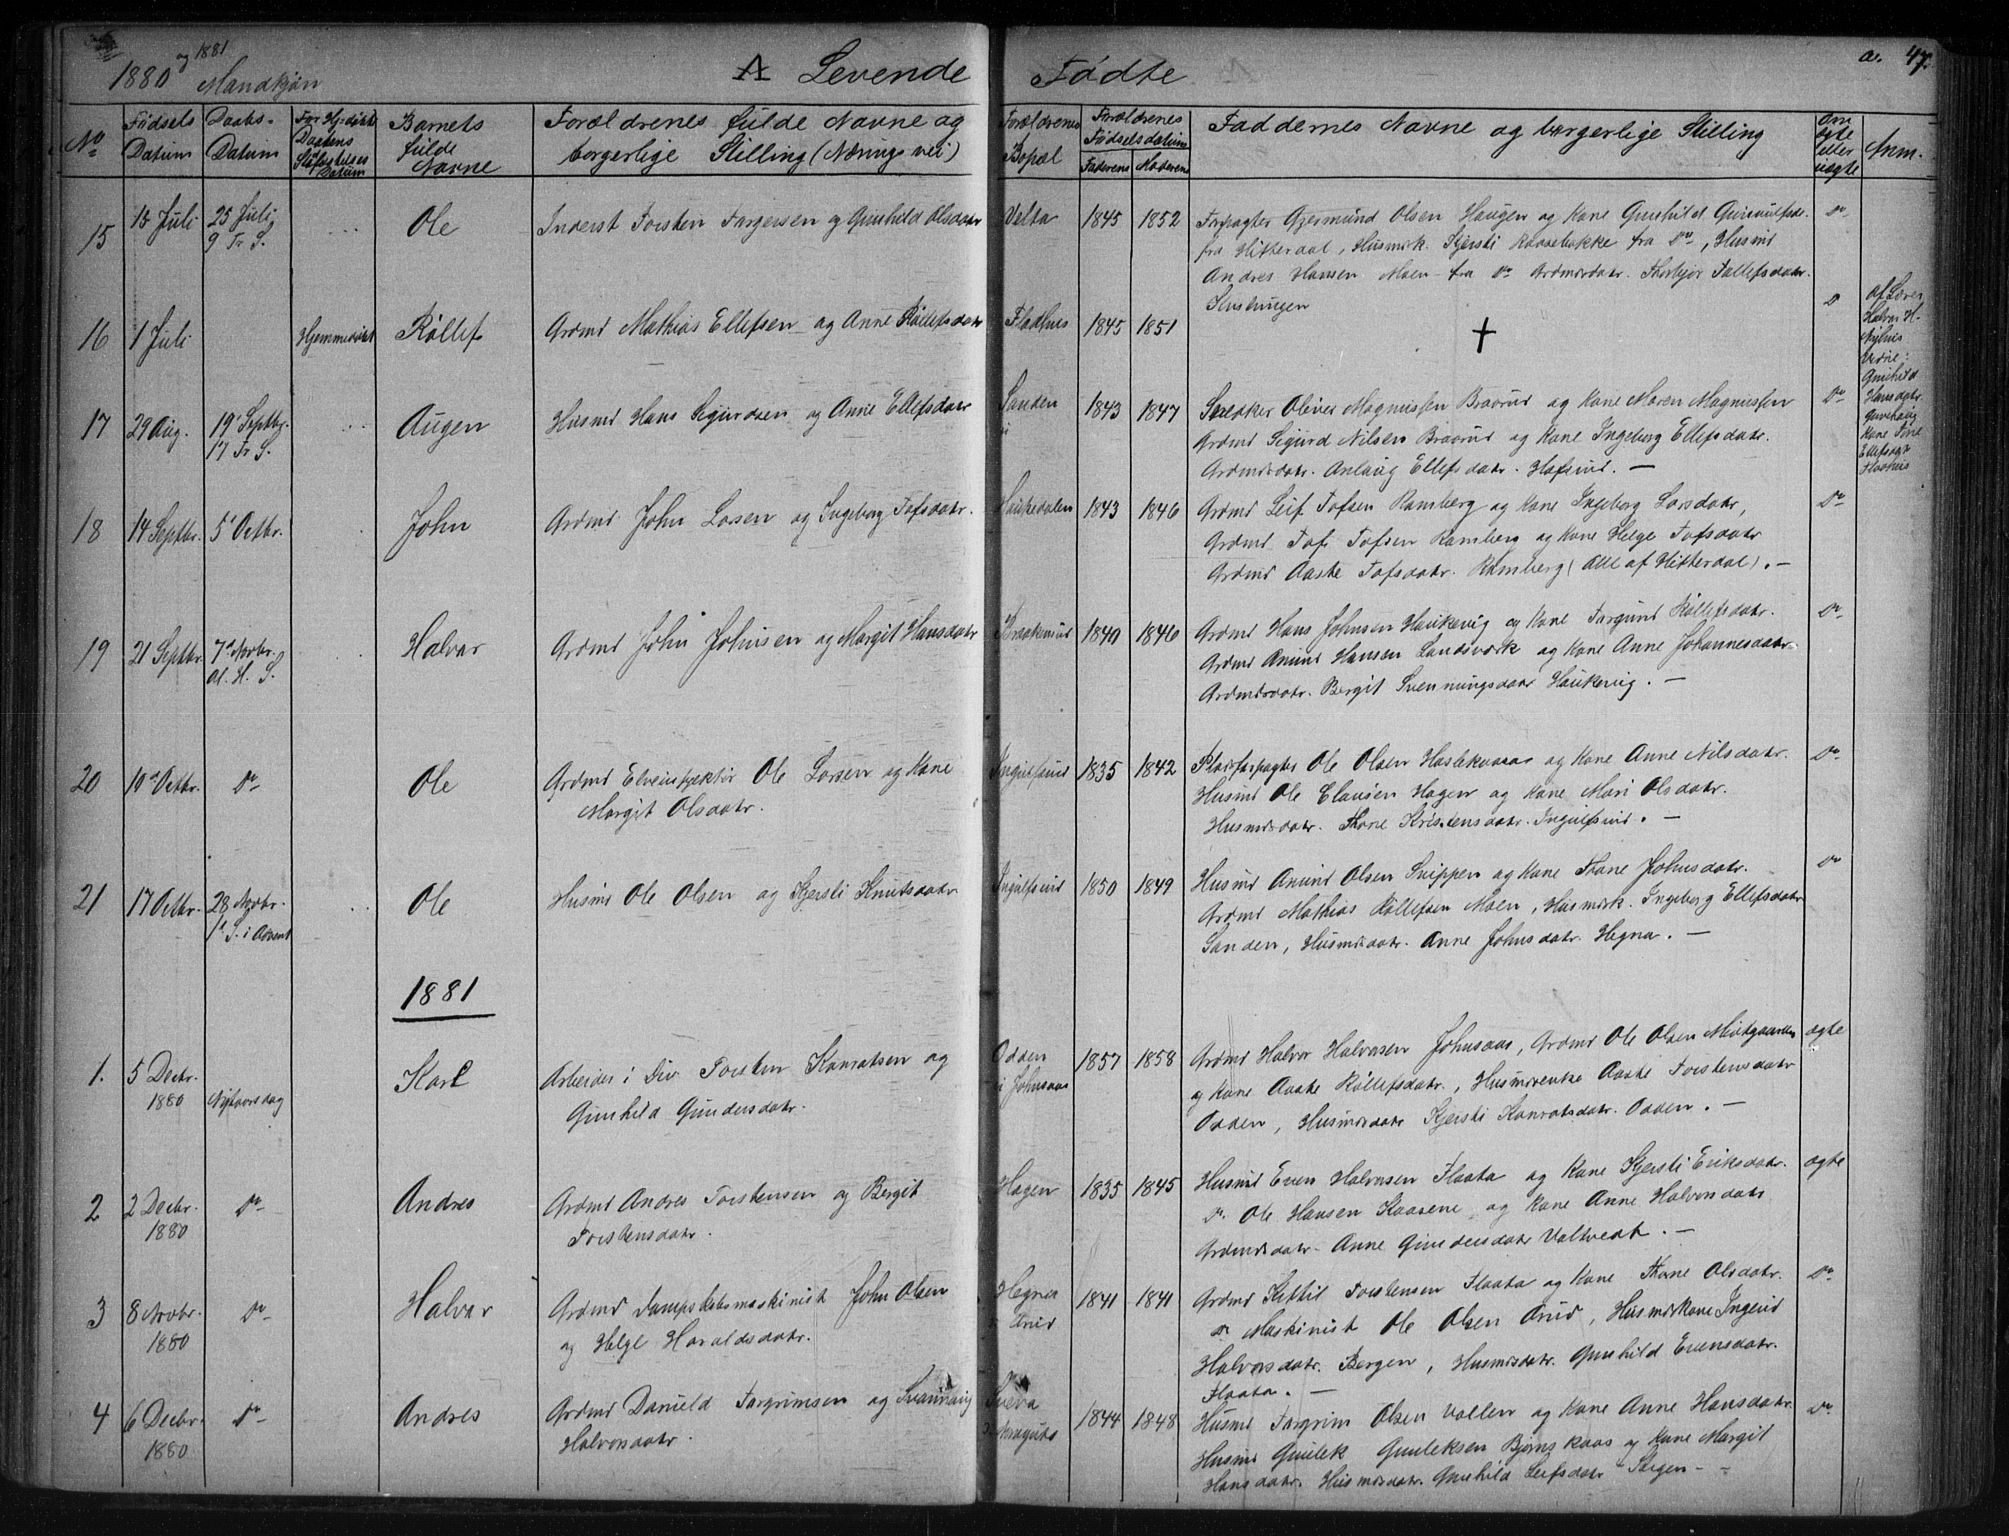 1880 og 1881
Mandkjøn
A Levende Fødte
a. 47.
No
Fødsels Datum
Daabs-Datum
Daabens Datum
Barnets fulde Navne
Forældrenes fulde Navne og
borgerlige Stilling (Nærings vei)
Forældrenes Bopæl
Forældrenes Fødselsdatum
Faderens Moderens
Faddernes Navne og borgerlige Stilling
Om ægte eller uægte
Anm.
15
18 Juli
25 Juli
9 Tr. S.
Ole
Inderst Torsten Torgersen og Gunhild Olsdatr
Velta
1845 1852
Forpagter Gjermund Olsen Haugen og Kone Gunhild
fra Hitterdal, Husmk. Kjersti fra Do, Husmd
Andres Hansen Moen fra Do Grdmdsdatr. Thorbjør Tollefsdatr.
Do
16
1 Juli
Hjemmedøbt
Røllef
Grdmd Mathias Ellefsen og Anne Røllefsdatr
Flodhus
1845 1851
†
D
af Lærer
Halvor H.
Nyhus
Vidne:
Gunhild
Hansdatr
Kone
Ellefsdtr
17
29 Aug.
19' Septbr.
17 Tr. S.
Augen
Husmd Hans Sigurdsen og Anne Ellefsdatr
Sanden
1843 1847
Oliver Magnussen Braarud og Kone Maren Magnussen
Grdmd Sigurd Nilsen Braarud og Kone Ingeborg Ellefsdatr.
Grdmdsdatr. Anlaug Ellefsdatr. —
Do
18
14 Septbr.
5' Octbr.
John
Grdmd John Larsen og Ingeborg Tofsdatr.
Haukedalen
1843 1846
Grdmd Leif Tofsen Ramberg og Kone Ingeborg Larsdatr,
Grdmd Tof Tofsen Ramberg og Kone Helge Tofsdatr
Grdmd Aaste Tofsdatr. Ramberg (Alle af Hitterdal). —
Do
19
21 Septbr.
7' Novbr.
Al. H. S.
Halvar
Grdmd John Johnsen og Margit Hansdatr
1840 1846
Grdmd Hans Johnsen Haukerig og Kone Torgund Røllefsdatr.
Grdmd Amund Hansen Landsverk og Kone Anne Johannesdatr
Grdmdsdatr. Bergit Svenningsdatr Haukerig. —
Do
20
10 Octbr.
Do
Ole
Grdmd Elveinspektør Ole Larsen og Kone
Margit Olsdatr.
Ingulfsrud
1835 1842
Pladsforpagter Ole Olsen og Kone Anne Nilsdatr.
Husmd Ole Clausen Hagen og Kone Mari Olsdatr.
Husmdsdatr. Thone Kristensdatr. Ingulfsrud. —
Do
21
17 Octbr.
28 Novbr.
1' S. i Advent
Ole
Husmd Ole Olsen og Kjersti Knutsdatr
Ingulfsrud
1850 1849
Husmd Amund Olsen Snippen og Kone Thone Johnsdatr.
Grdmd Mathias Røllefsen Moen, Husmdk. Ingeborg Ellefsdatr
Sanden, Husmdsdatr. Anne Johnsdatr. Hegna. —
Do
1881
1.
5 Decbr.
1880
Nytaarsdag
Karl
Arbeider i Div Torsten Konratsen og
Gunhild Gundersdatr.
Odden
i Johnsaas
1857 1858
Grdmd Halvor Halvorsen Johnsaas, Grdmd Ole Olsen Midtgaarden
og Kone Aaste Røllefsdatr., Husmdenke Aaste Torstensdatr
Odden, Husmdsdatr Kjersti Konratsdatr. Odden. —
ægte
2
2 Decbr.
1880
Do
Andres
Grdmd Andres Torstensen og Bergit
Torstensdatr.
Hagen
1835 1845
Husmd Even Halvorsen Flaata og Kone Kjersti Eriksdatr.
Do Ole Hansen Kaasene og Kone Anne Halvorsdatr
Grdmdsdatr. Anne Gundersdatr Voltvedt. —
ægte
3
8 Novbr.
1880
Do
Halvar
Grdmd Dampskibsmaskinist John Olsen
og Helge Haraldsdatr.
Hegna
Arud
1841 1841
Grdmd Kittil Torstensen Flaata og Kone Thone Olsdatr.
Do Maskinist Ole Olsen Arud, Husmdskone Ingerid
Halvorsdatr. Bergen, Husmdsdatr. Gunhild Evensdatr.
Flaata. —
Do
4
6 Decbr.
1880
Do
Andres
Grdmd Danield Torgrimsen og Svannaug
Halvorsdatr.
1844 1848
Husmd Torgrim Olsen Vollen og Kone Anne Hansdatr.
Husmd Gunlek Gunleksen Bjørnskaas og Kone Margit
Hansdatr. Husmdsdatr. Gunhild Leifsdatr
Do